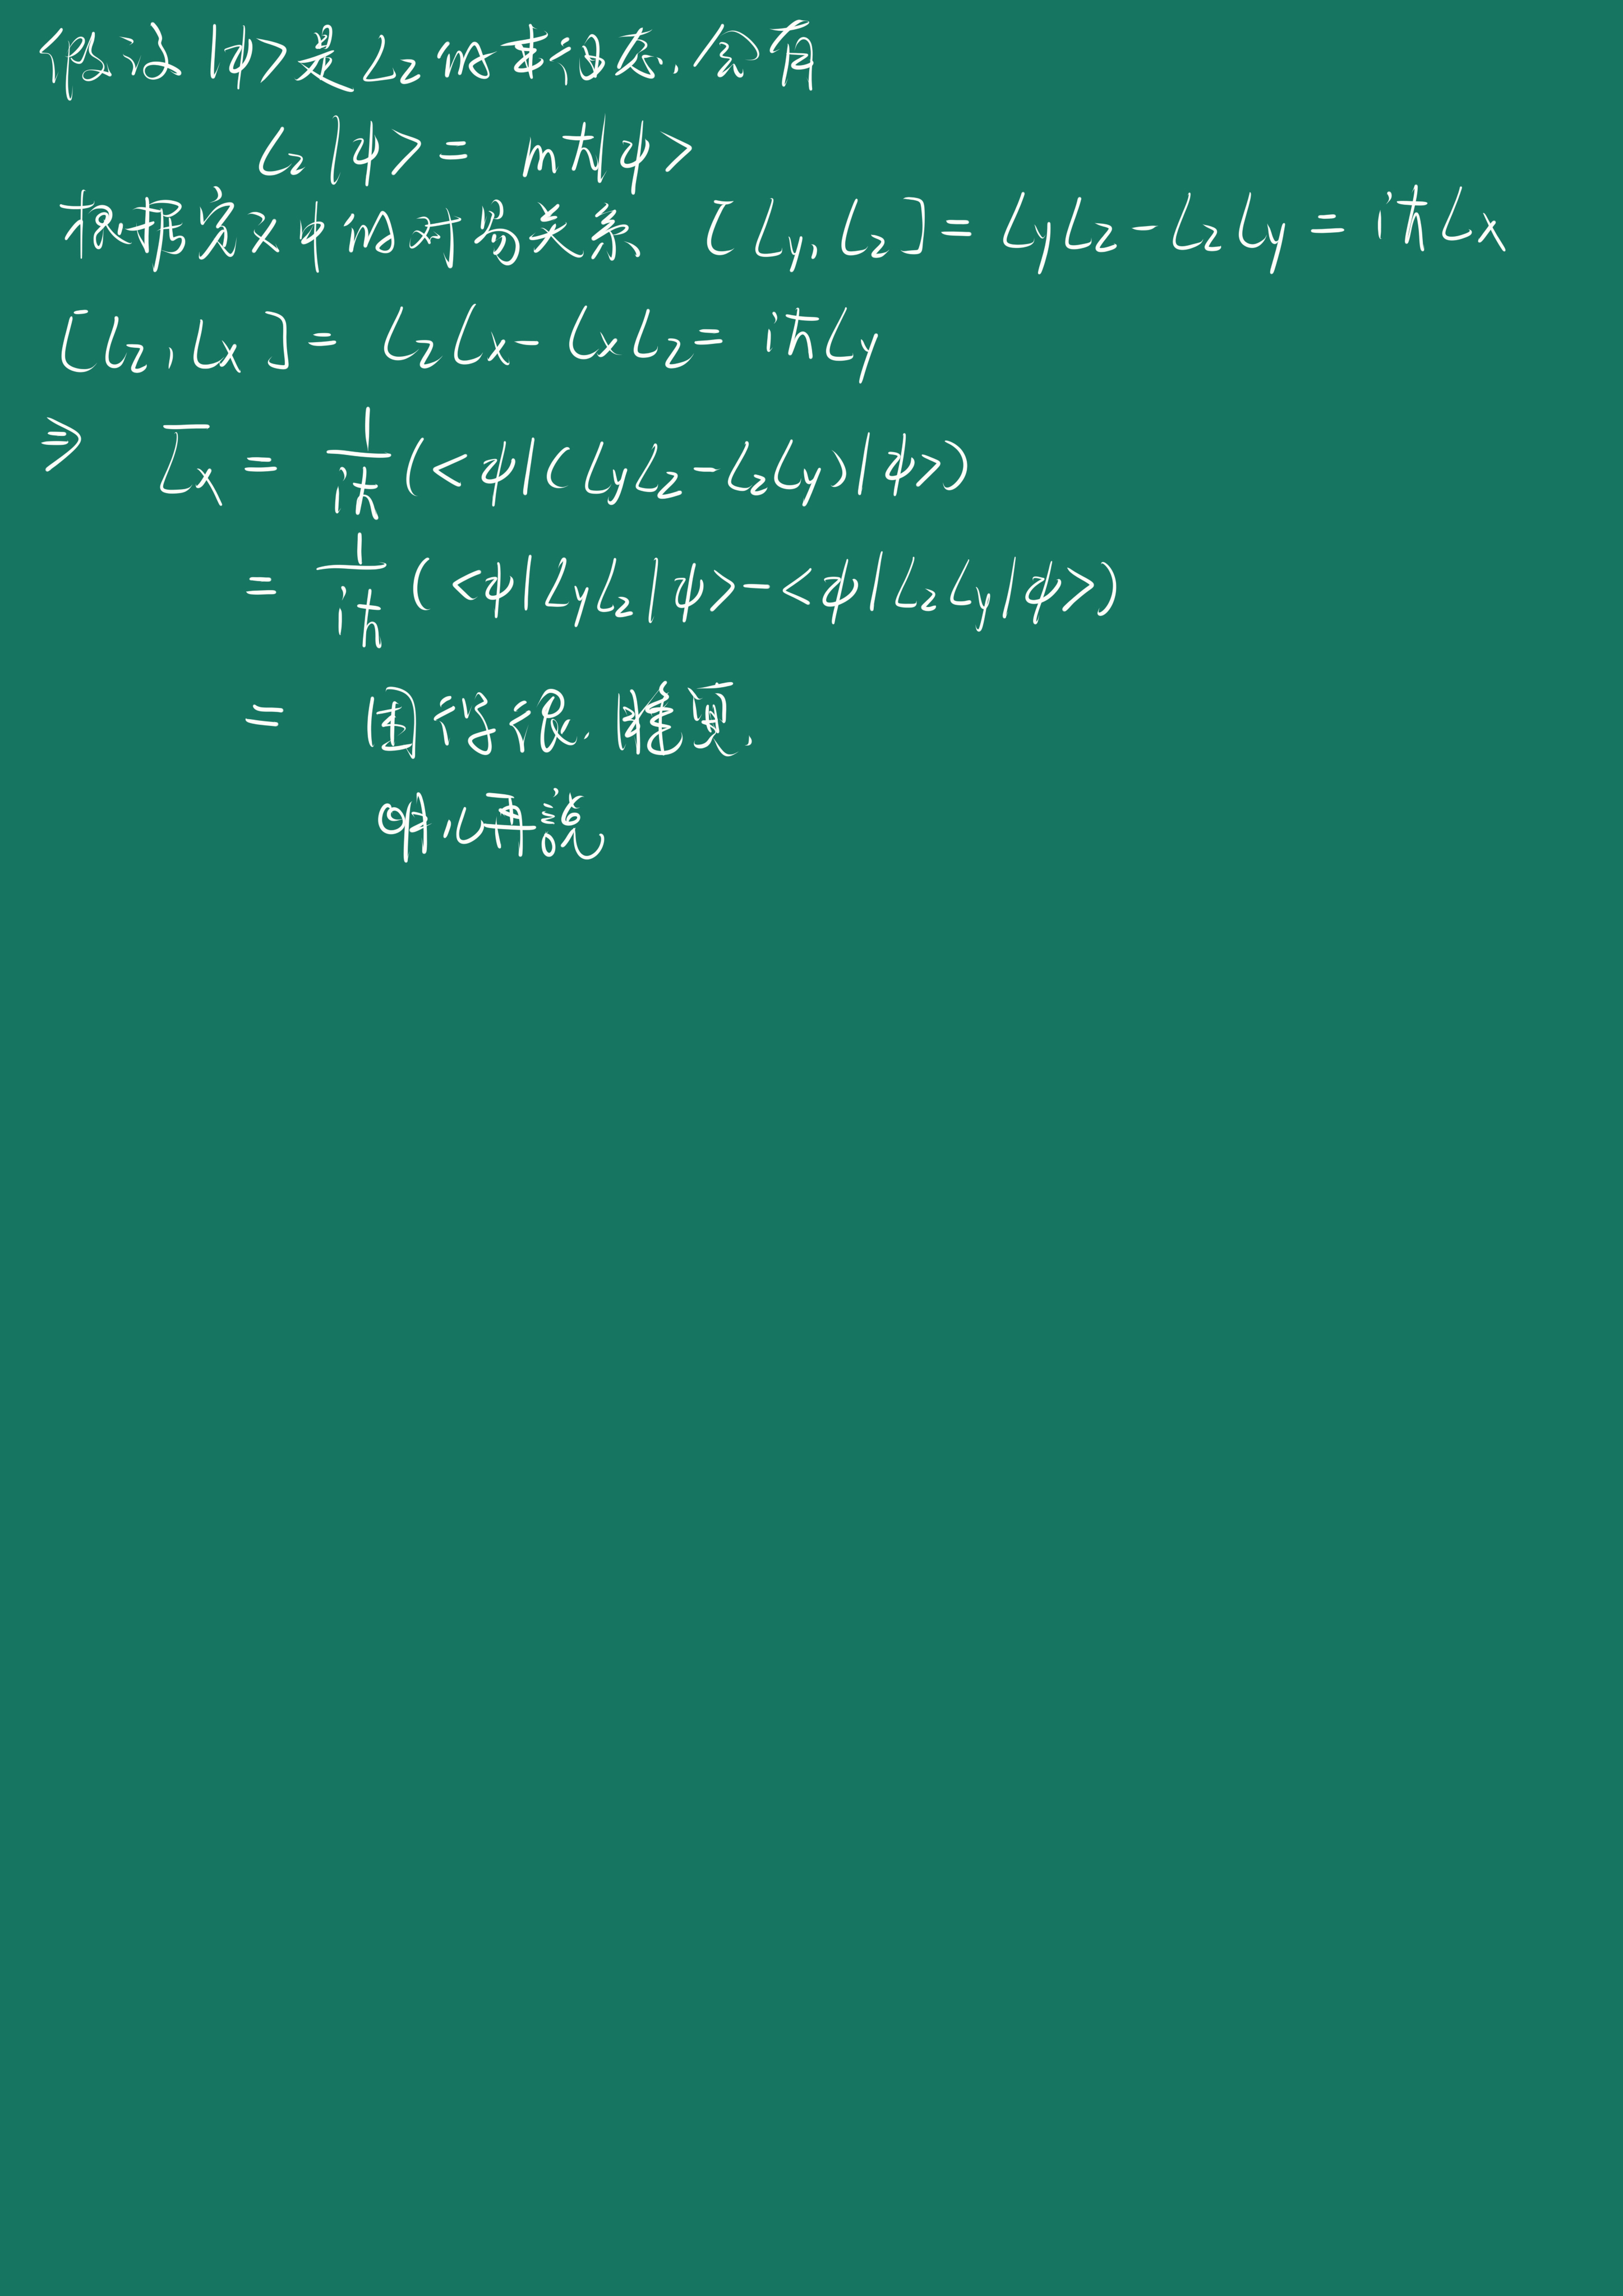 假设 |ψ> 是 Lz 的本征态, 会有
Lz |ψ> = mħ|ψ>
根据定义中的对易关系 [Ly, Lz] = LyLz - LzLy = iħLx
[Lz, Lx] = LzLx - LxLz = iħLy
⇒ L̅x = 1/iħ (<ψ|(LyLz - LzLy)|ψ>)
= 1/iħ (<ψ|LyLz|ψ> - <ψ|LzLy|ψ>)
= 困得很, 睡觉,
明儿再說